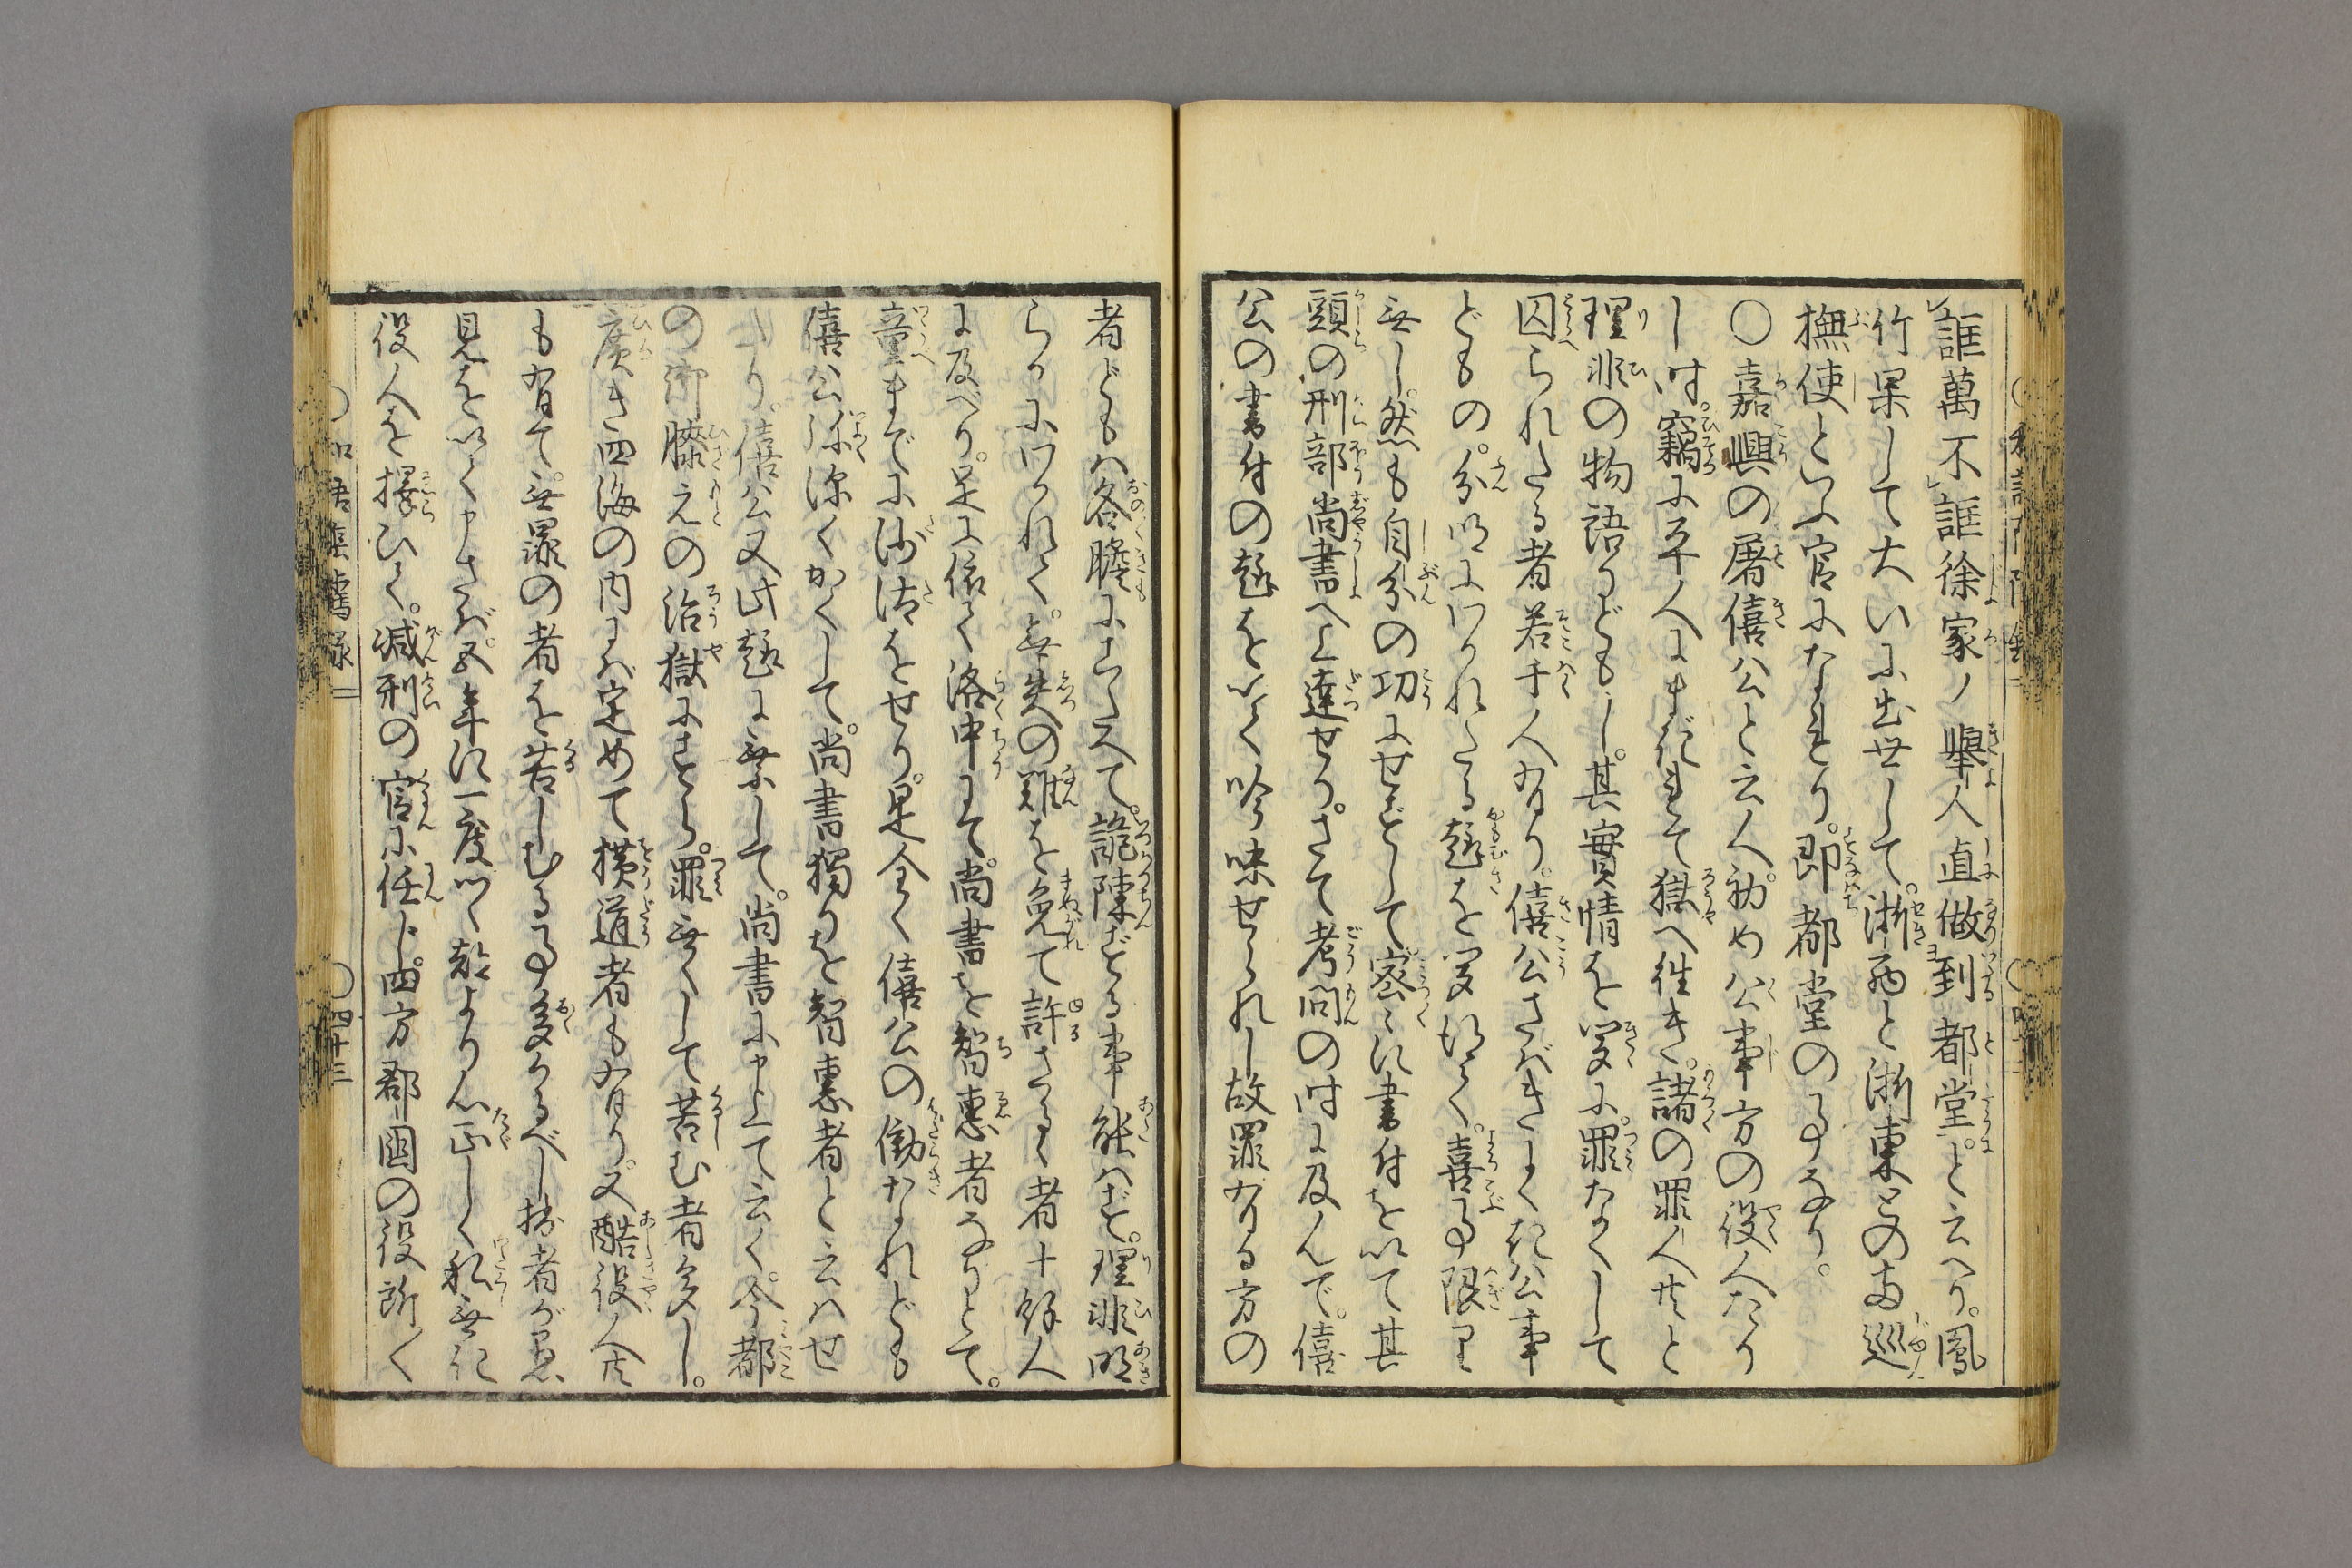 誑萬不誑徐家ノ舉人直做到都堂と云へり。鳳
竹果して大いに出世して。浙西と浙東との両巡
撫使といふ官になれり。即都堂の事なり。
○嘉興の屠僖公と云人。初め公事方の役人たり
し时。竊に平人にまぎれて獄へ往き。諸の罪人共と
理非の物語りどもし。其實情を聞に。罪なくして
囚られたる者若干人有り。僖公さばきよく公事
どもの。分明にわかれたる趣を聞得て。喜事限り
無し。然も自分の功にせずして。密々に書付を以て其
頭の刑部尚書へ上達せり。さて考問の时に及んで。僖
公の書付の趣を以て吟味せられし故罪有る方の
者どもハ各膽にこたへて。詭陳ずる事能ハず。理非明
らかにわかれて。無失の難を免て許さるゝ者十餘人
に及べり。是に依て洛中にて。尚書を智惠者なりとて。
童までに沙汰をせり。是全く僖公の働なれども
僖公弥深くかくして。尚書獨りを智惠者と云ハせ
たり。僖公又此趣に乗して。尚書に申上て云く。今都
の御膝元の治獄にすら。罪無くして苦む者多し。
廣き四海の内にハ定めて横道者も有り。又酷役人共
も有て。無罪の者を苦しむる事多かるべし拙者が愚
見を以て申さバ。五年に一度づゝ都より心正しく私無き
役人を擇ひて。減刑の官に任じ。四方郡國の役所〱
四十三